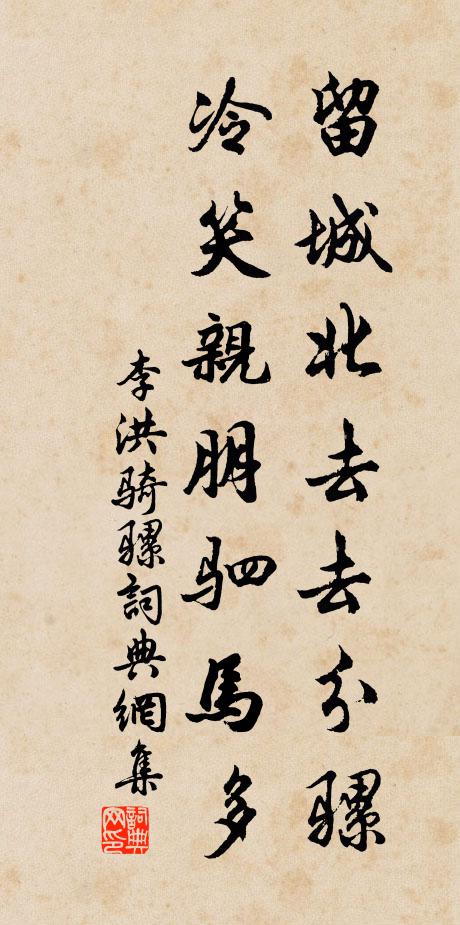 留城北去去分騾
冷笑親朋駟馬多
李洪骑騾詞典網集
詞典网印